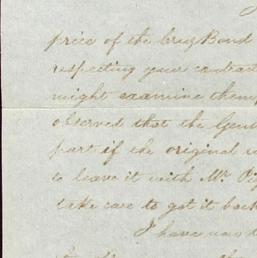 price of the Bond
respecting your contract
might examine them
observed that the Gent
part if the original
to leave it with Mr. Pi
take care to get it back
I have no